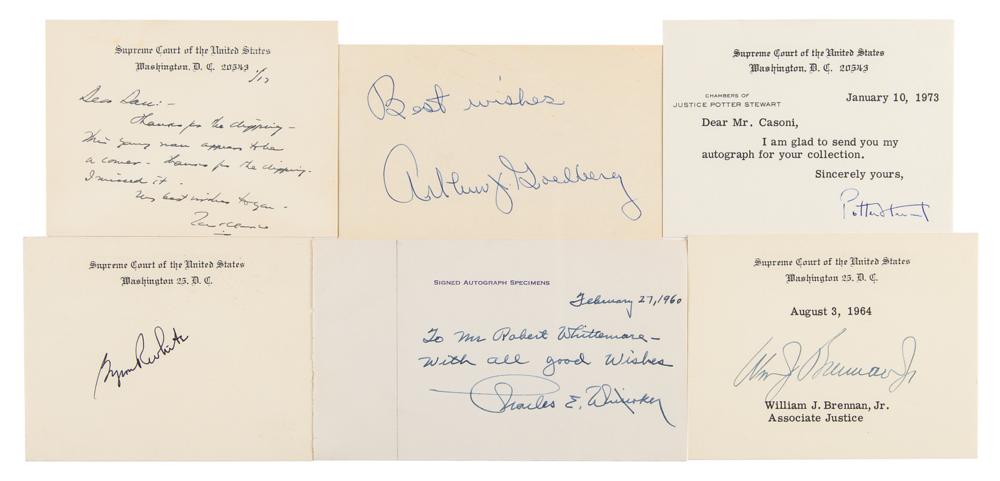 Supreme Court of the United States
Washington, D. C. 20543
1/17
Dear
Thanks for the clipping –
This young man appears to be
a comer – thanks for the clipping.
I missed it.
My best wishes to you –
Best wishes
Arthur J. Goldberg
Supreme Court of the United States
Washington, D. C. 20543
CHAMBERS OF
JUSTICE POTTER STEWART
January 10, 1973
Dear Mr. Casoni,
I am glad to send you my
autograph for your collection.
Sincerely yours,
Potter Stewart
Supreme Court of the United States
Washington 25, D. C.
Byron R White
SIGNED AUTOGRAPH SPECIMENS
February 27, 1960
To Mr Robert Whittemore –
With all good Wishes
Charles E. Whittaker
Supreme Court of the United States
Washington 25, D. C.
August 3, 1964
Wm J. Brennan Jr
William J. Brennan, Jr.
Associate Justice